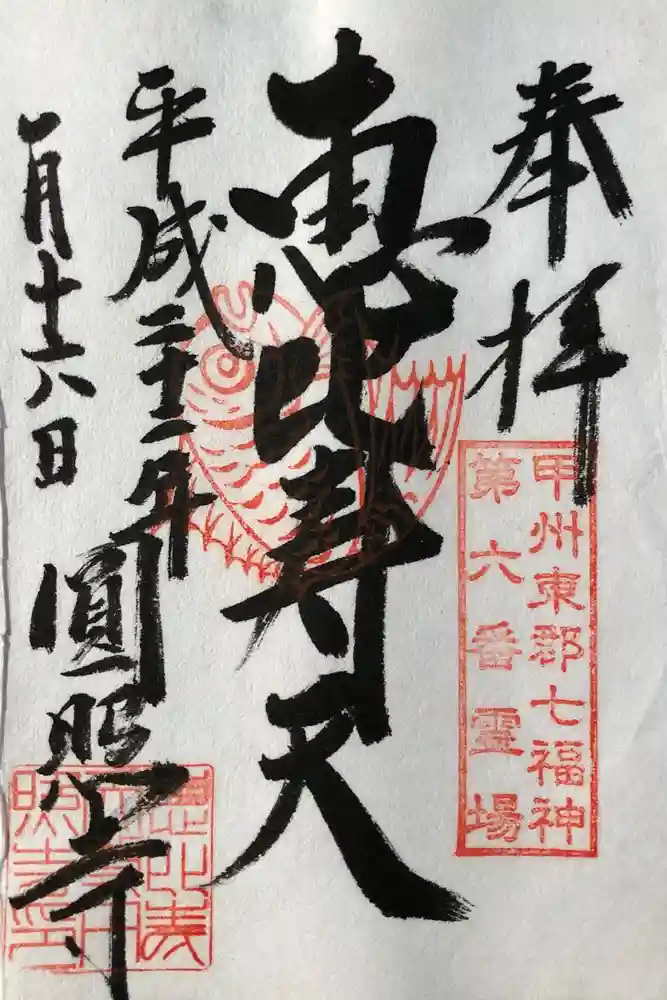 奉拝
甲州東郡七福神
第六番霊場
恵比寿天
平成二十二年
一月十六八日
圓照寺